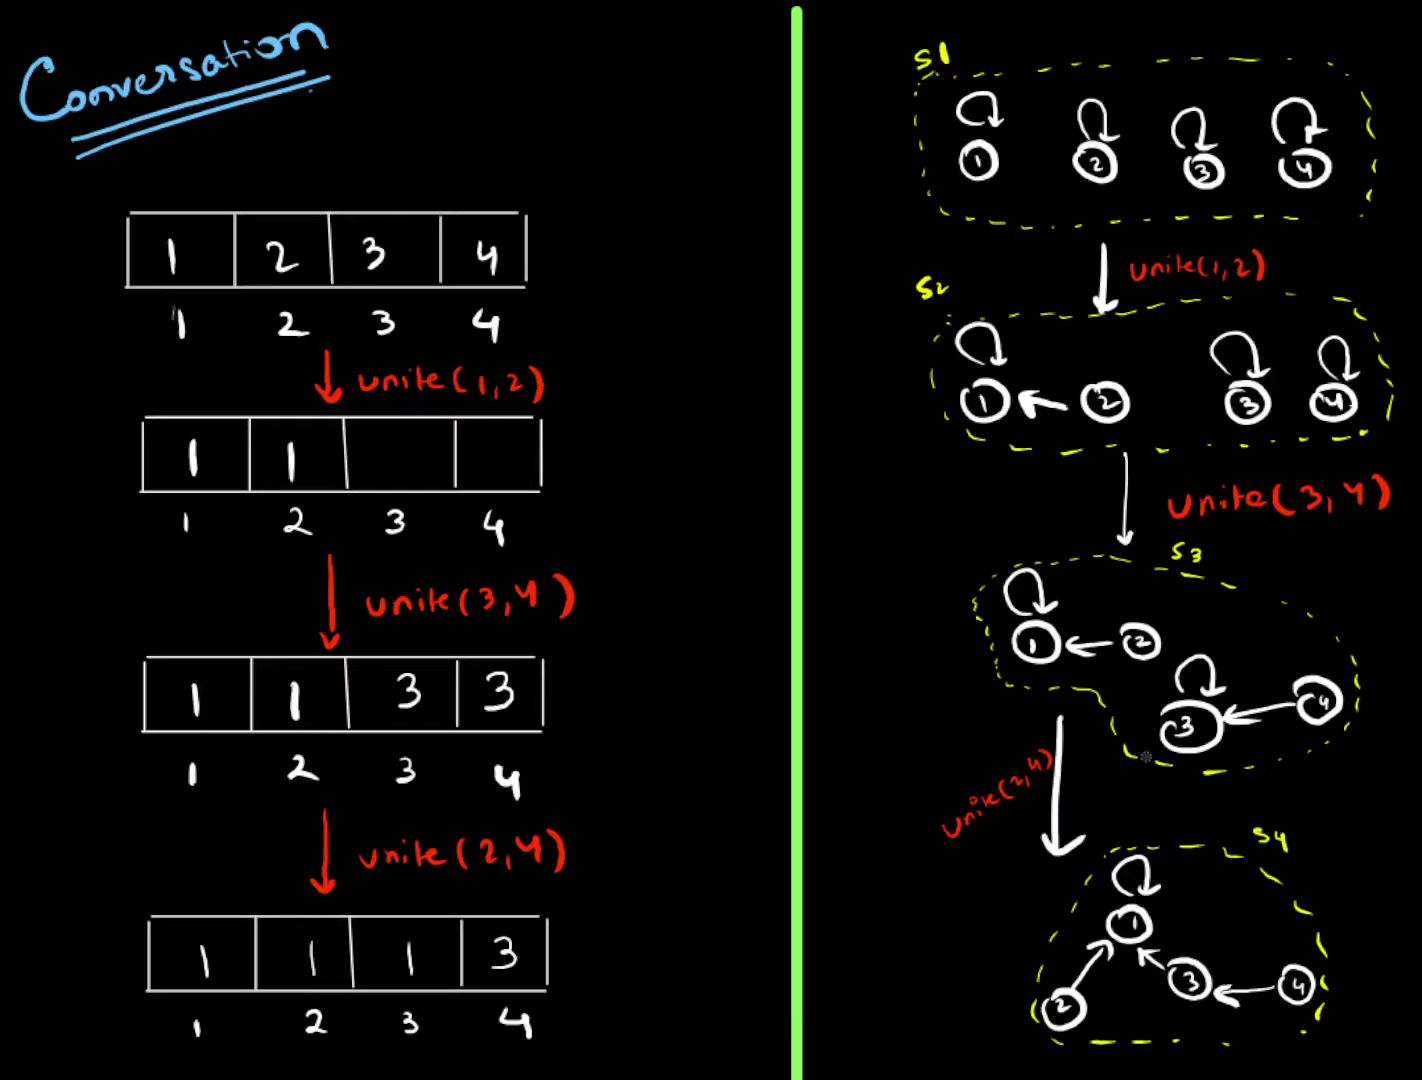 Conversation
1 2 3 4
1 2 3 4
unite(1,2)
1 1
1 2 3 4
unite(3,4)
1 1 3 3
1 2 3 4
unite(2,4)
1 1 1 3
1 2 3 4
S1
1 2 3 4
unite(1,2)
S2
1 2 3 4
unite(3,4)
S3
1 2
3 4
unite(2,4)
S4
1
2 3 4